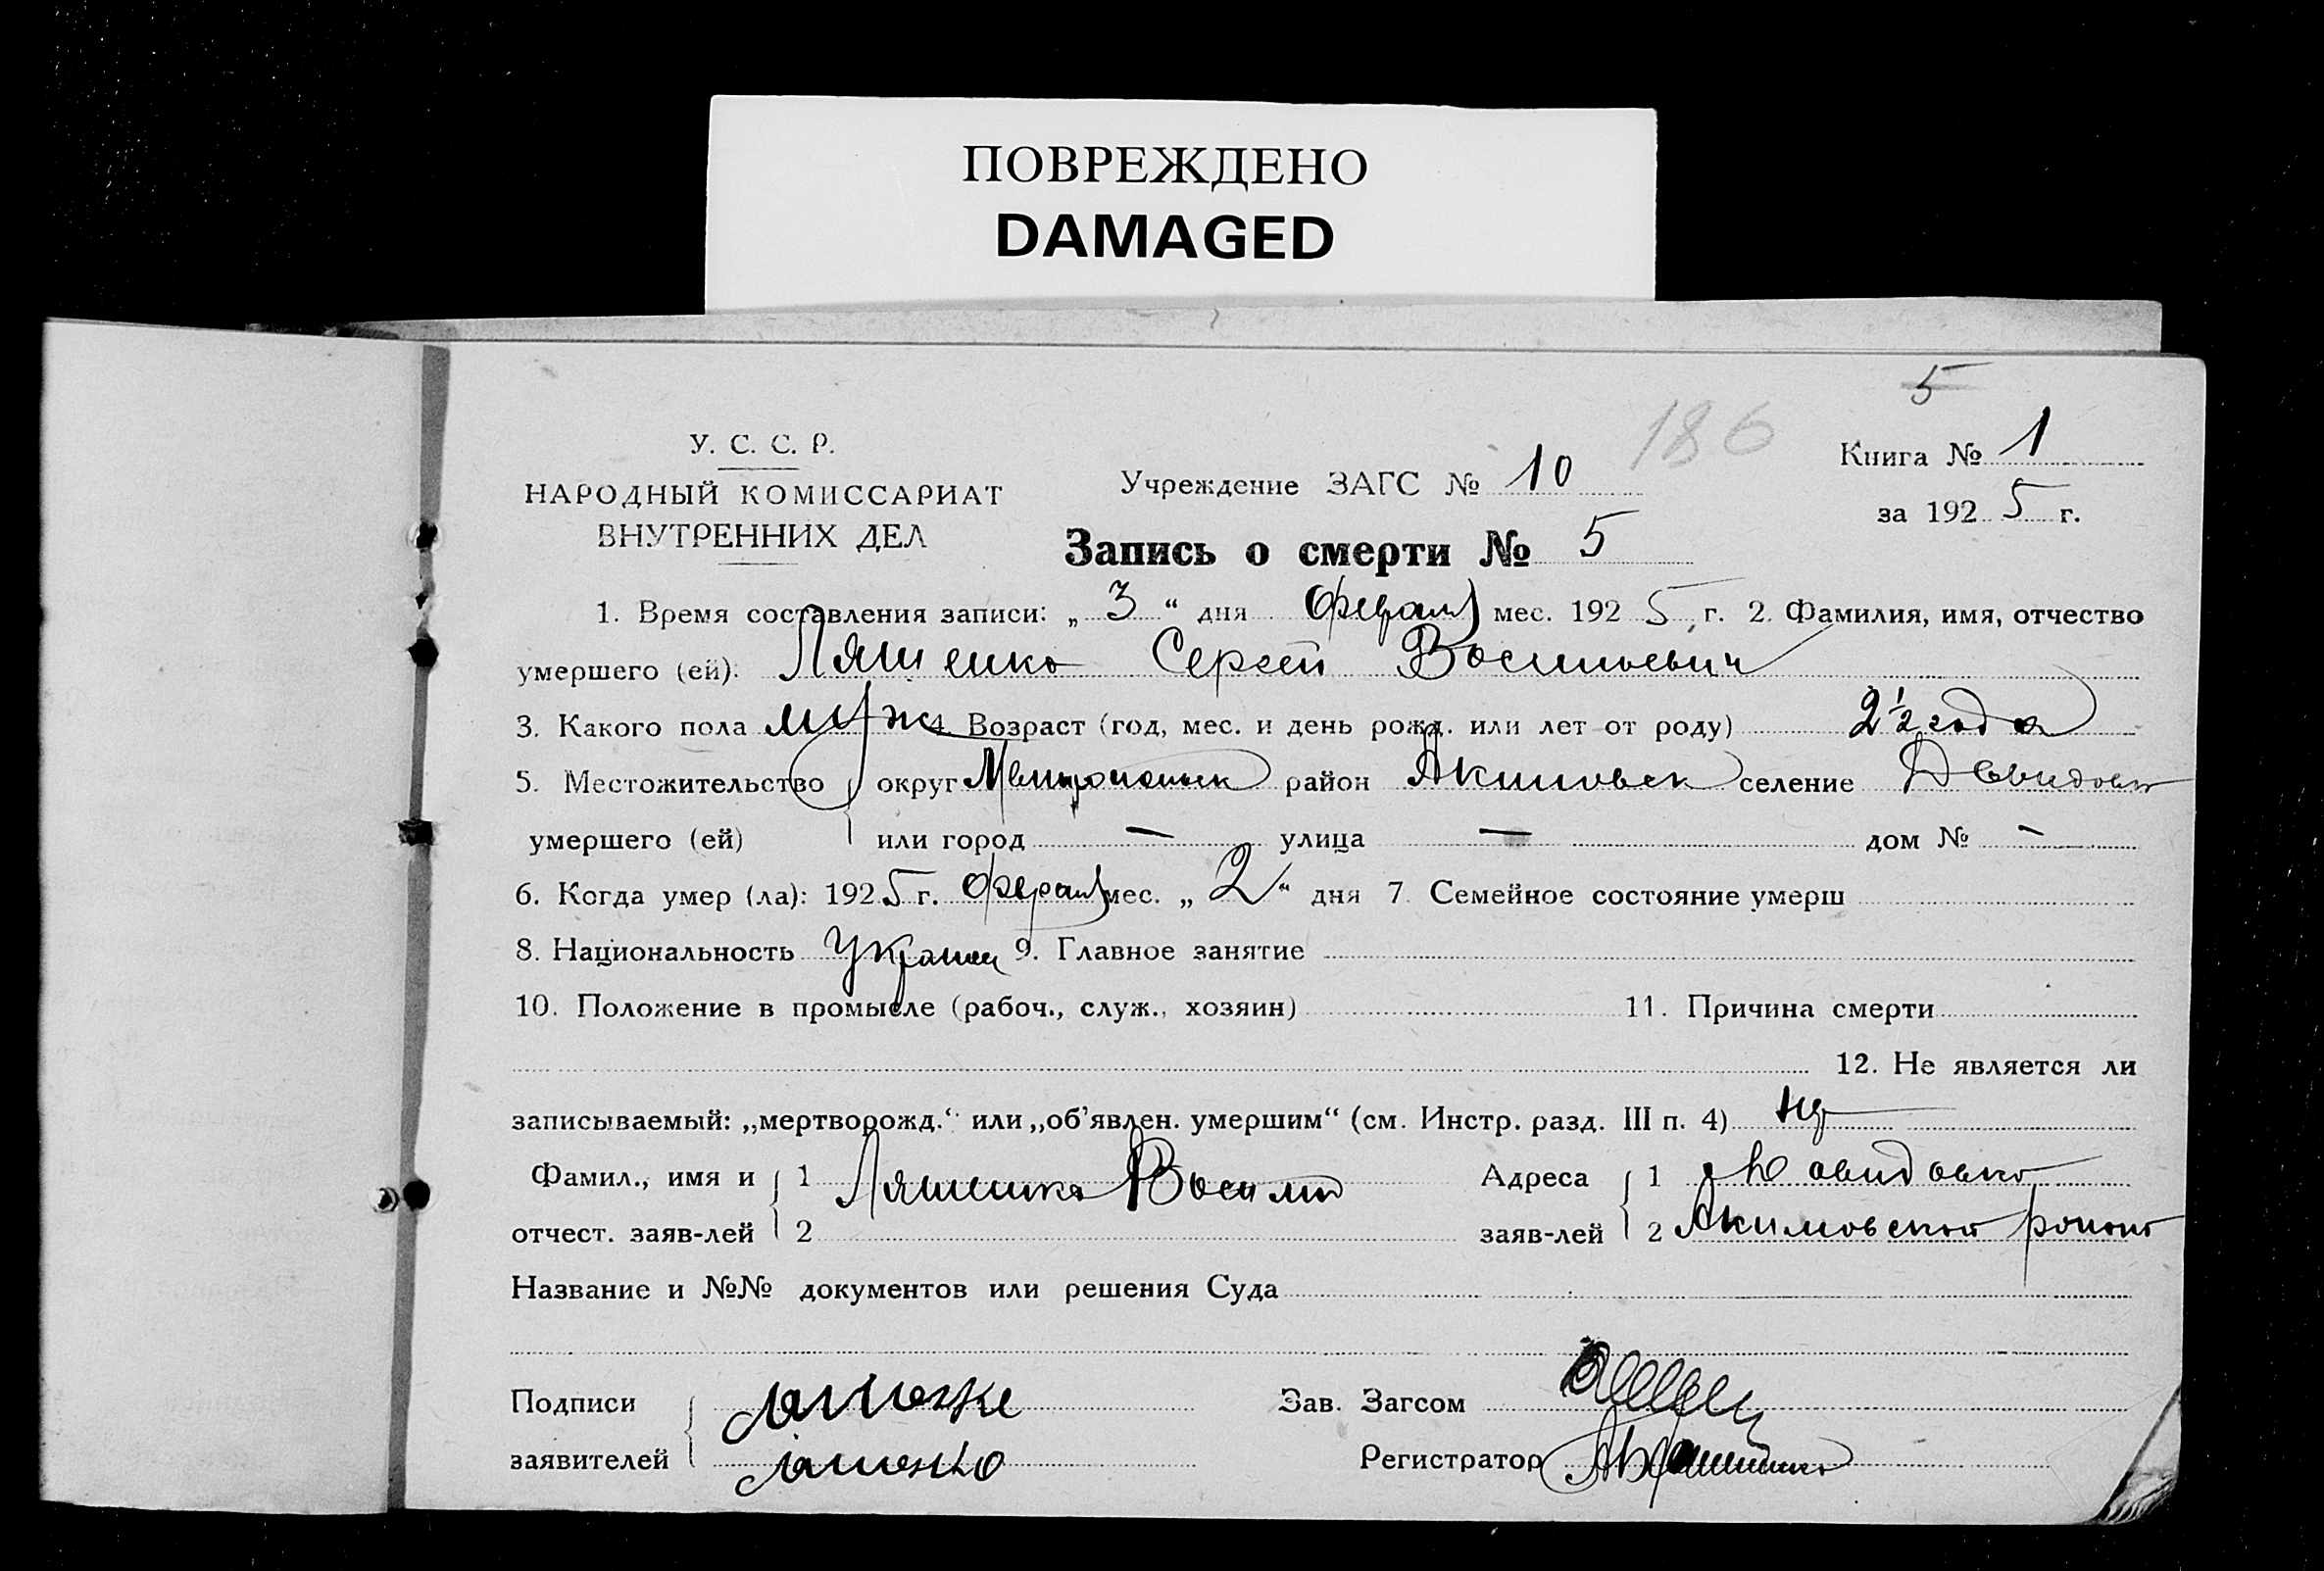 ПОВРЕЖДЕНО
DAMAGED
5
186
У. С. С. Р.
НАРОДНЫЙ КОМИССАРИАТ
ВНУТРЕННИХ ДЕЛ
Учреждение ЗАГС № 10
Книга № 1
за 1925 г.
Запись о смерти № 5
1. Время составления записи: „3“ дня феврал мес. 1925 г. 2. Фамилия, имя, отчество
умершего (ей): Ляшенко Сергей Васильевич
3. Какого пола муж 4. Возраст (год, мес. и день рожд. или лет от роду) 2½ года
5. Местожительство округ Мелитопольск район Акимовск селение Давидовк
умершего (ей) или город — улица — дом № —
6. Когда умер (ла): 1925 г. феврал мес. „2“ дня 7. Семейное состояние умерш
8. Национальность Украин 9. Главное занятие
10. Положение в промысле (рабоч., служ., хозяин) 11. Причина смерти
12. Не является ли
записываемый: „мертворожд.“ или „об’явлен. умершим“ (см. Инстр. разд. III п. 4)
Фамил., имя и 1 Ляшенко Василий Адреса 1 Давидовка
отчест. заяв-лей 2 заяв-лей 2 Акимовского района
Название и №№ документов или решения Суда
Подписи Зав. Загсом
заявителей Регистратор